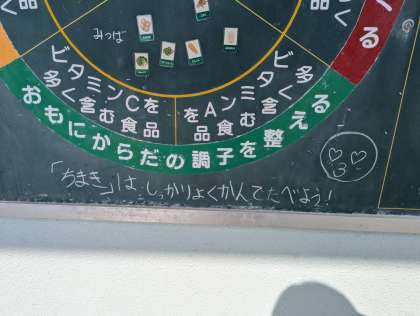 みつば
く
る
ビタミンCを
多く含む食品
ビタミンAを
多く含む食品
おもにからだの調子を整える
「ちまき」は、しっかりよくかんでたべよう!